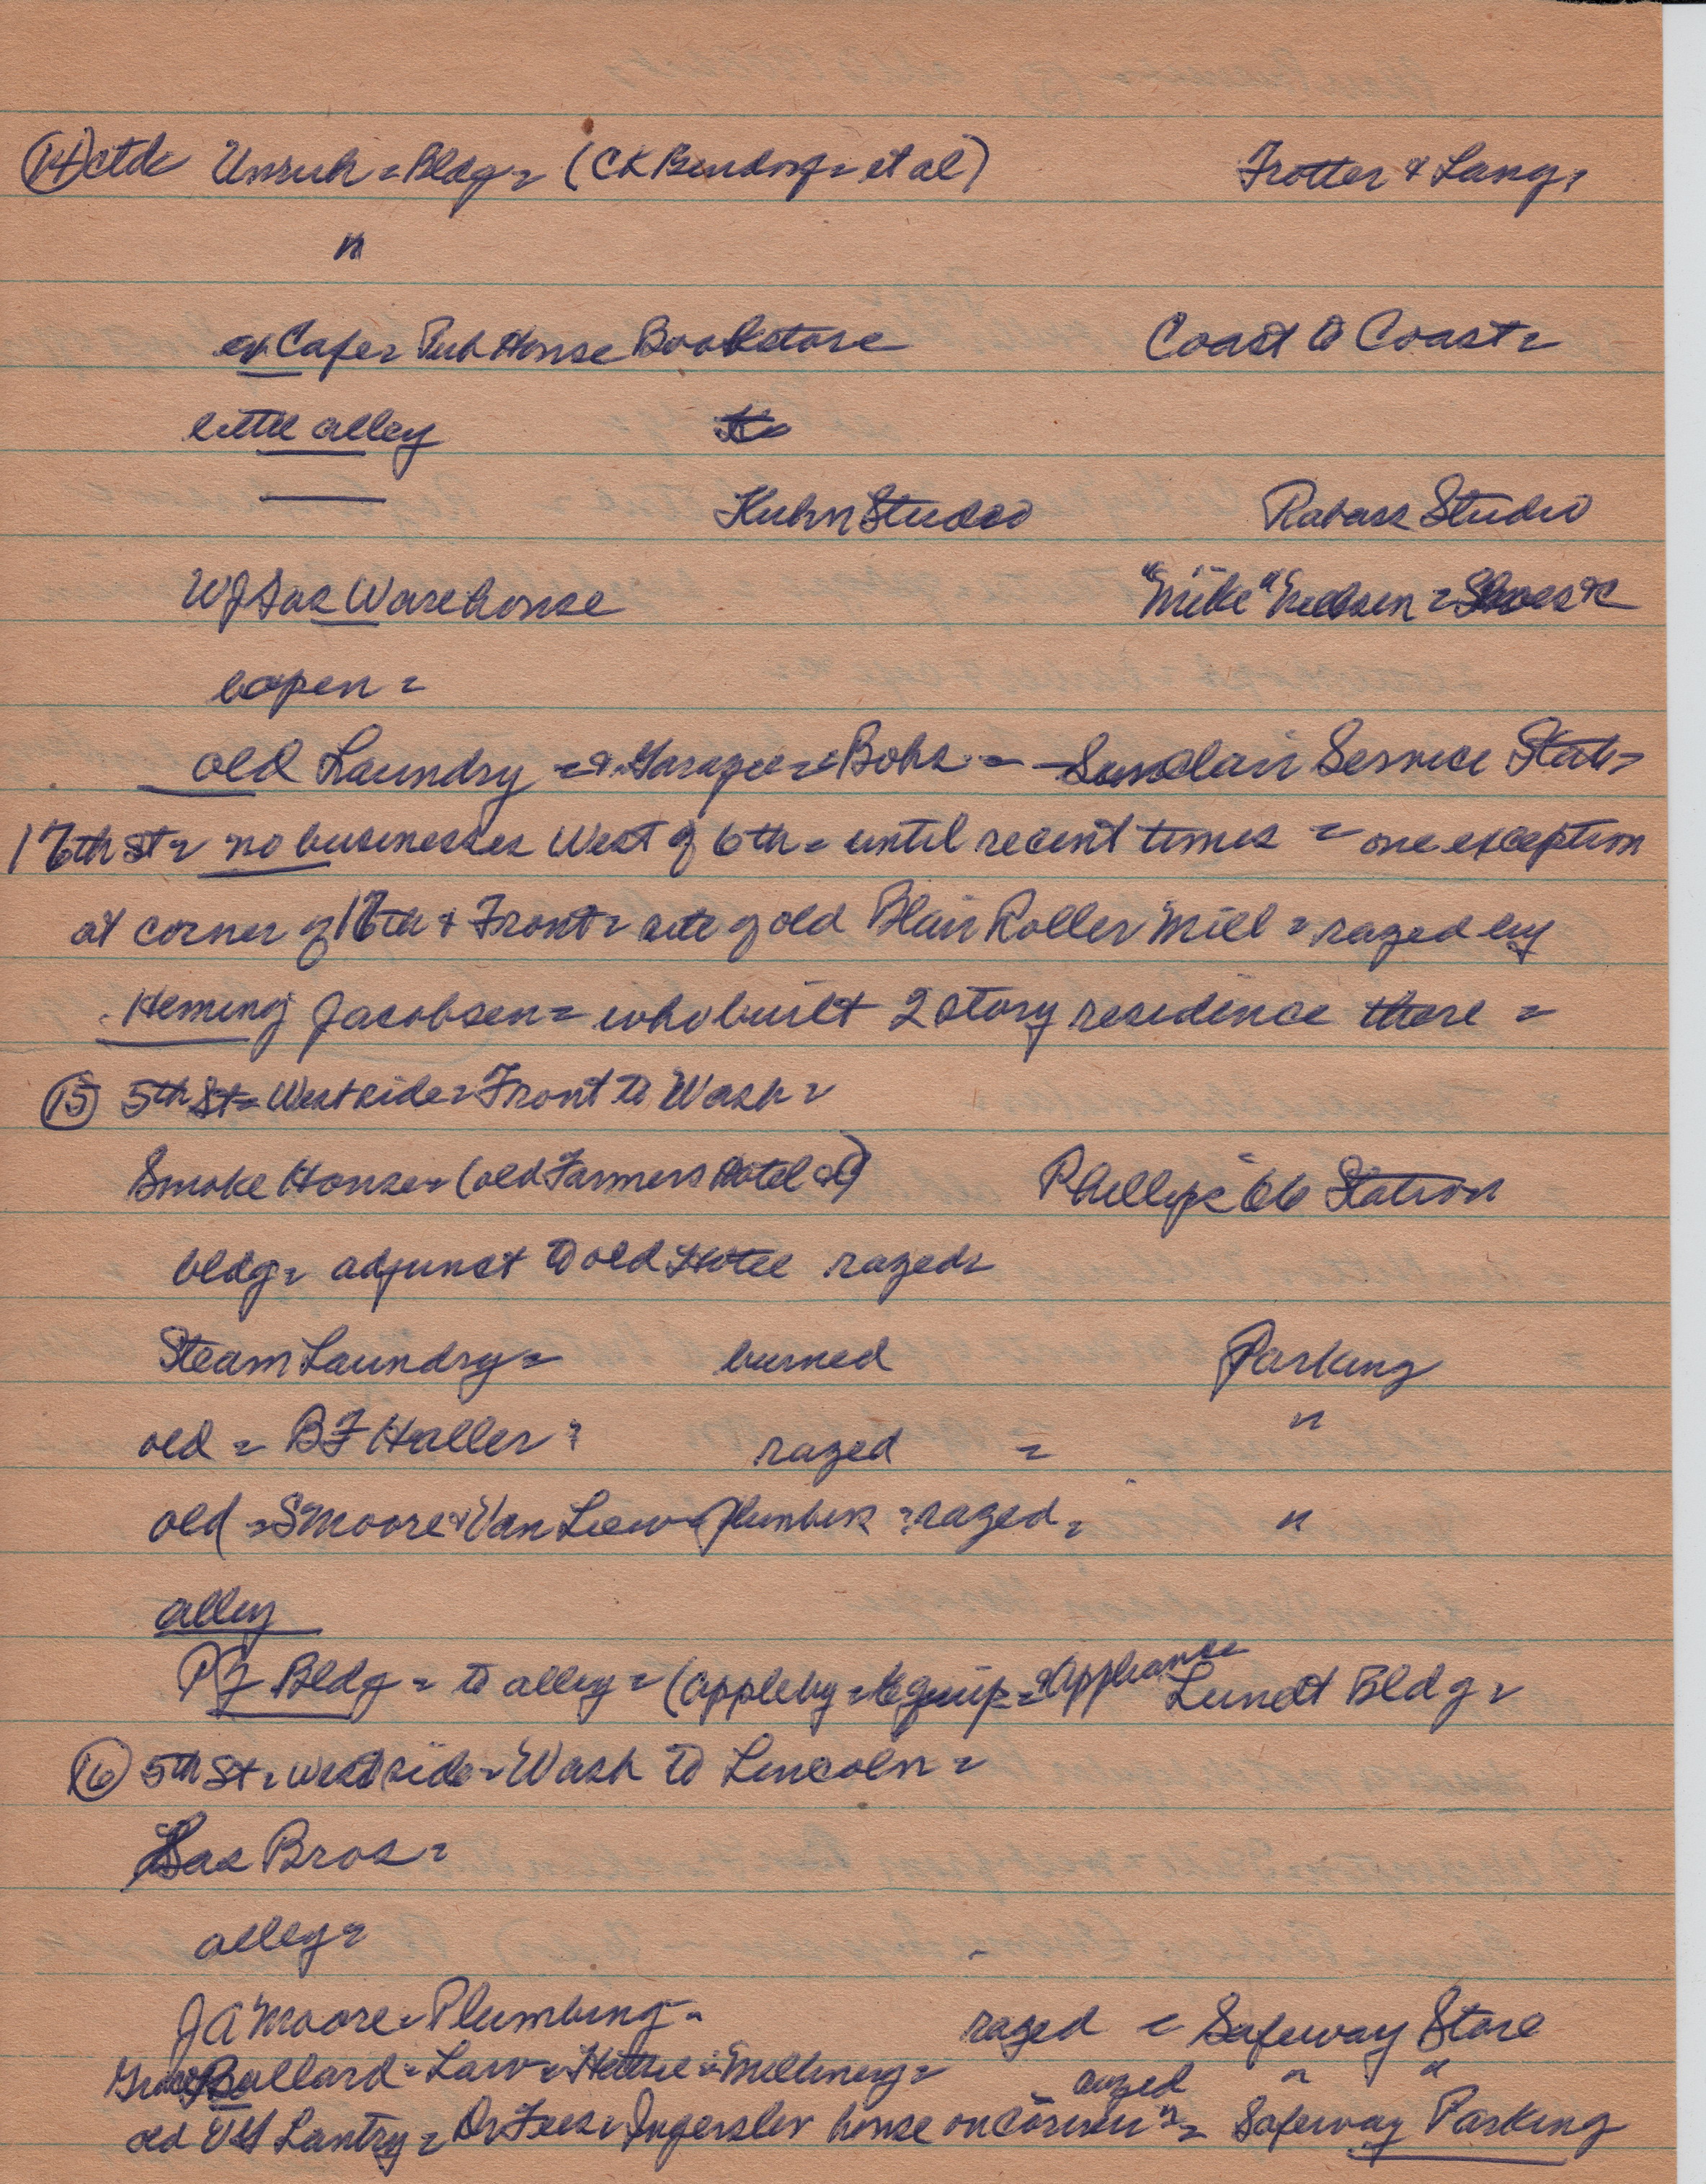 (14) ctd Unruh = Bldg = (CK Bendorf = et al) Trotter & Lang =
"
ex Cafe = Pub House Bookstore Coast to Coast =
little alley
Kuhn Studio Rabass Studio
WJ Sas Warehouse "Mike" Nielsen = Shoes &c
open =
old Laundry = & Garage = Bohs = Sinclair Service Stat =
16th St = no businesses West of 6th = until recent times = one exception
at corner of 16th & Front = site of old Blair Roller Mill = razed by
Heming Jacobsen = who built 2 story residence there =
(15) 5th St = West side = Front to Wash =
Smoke House = (old Farmers Hotel) Phillips 66 Station
bldg = adjunct to old Hotel razed =
Steam Laundry = burned Parking
old = BF Haller = razed = "
old = S Moore & Van Liew = Plumbers = razed = "
alley
Bldg = to alley = (Appleby = Equip = & Appliance Lundt Bldg =
(16) 5th St = West side = Wash to Lincoln =
Sas Bros =
alley =
JA Moore = Plumbing = razed = Safeway Store
Ballard = Law = Hattie = Millinery = razed " "
old Lantry = Dr Fees = Ingerslev house on corner " = Safeway Parking